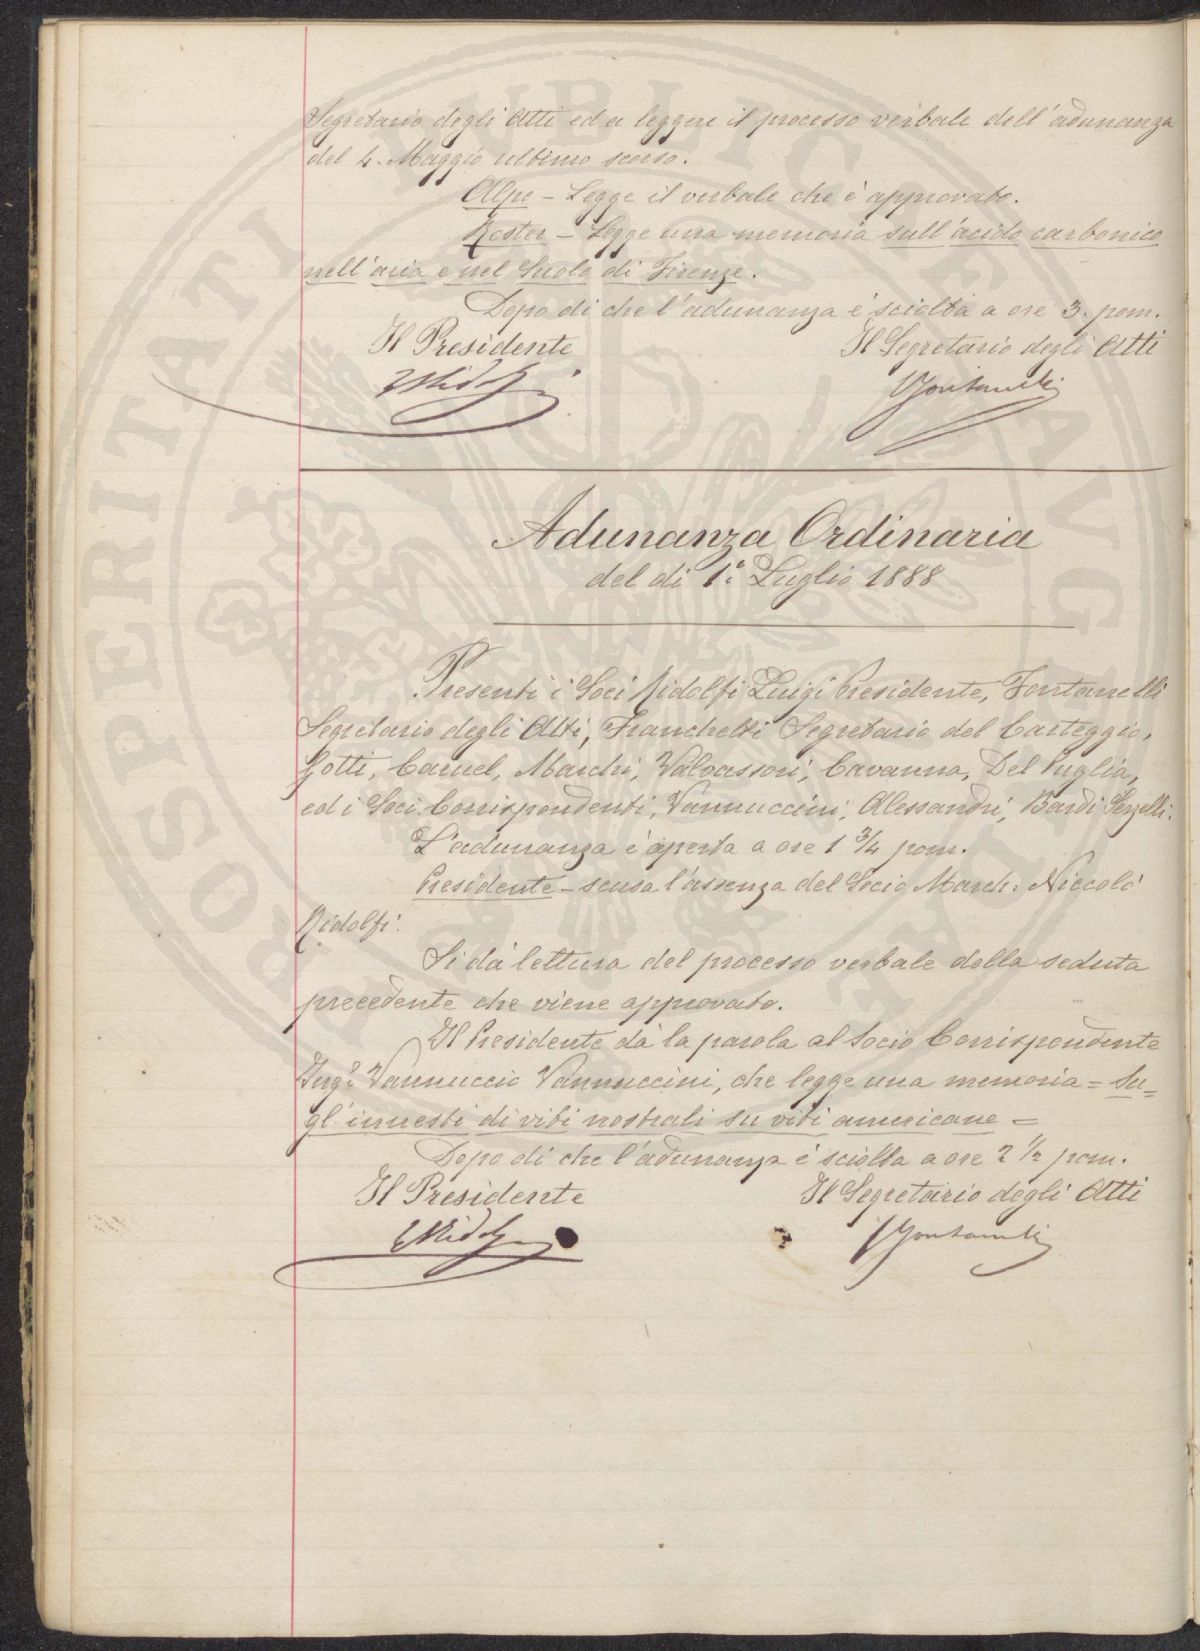 Segretario degli Atti ed a leggere il processo verbale dell'adunanza
del 4. Maggio ultimo scorso.
Alpe – Legge il verbale che è approvato.
Roster – Legge una memoria sull'acido carbonico
nell'aria e nel Suolo di Firenze.
Dopo di che l'adunanza è sciolta a ore 3. pom.
Il Presidente
Il Segretario degli Atti
LRidolfi
Fontanelli
Adunanza Ordinaria
del dì 1°. Luglio 1888
Presenti i Soci Ridolfi Luigi Presidente, Fontanelli
Segretario degli Atti, Franchetti Segretario del Carteggio,
Gotti, Caruel, Marchi, Valvassori, Cavanna, Del Puglia,
ed i Soci Corrispondenti, Vannuccini, Alessandri, Bardi Serzelli.
L'adunanza è aperta a ore 1 3/4 pom.
Presidente – scusa l'assenza del Socio March: Niccolò
Ridolfi.
Si dà lettura del processo verbale della seduta
precedente che viene approvato.
Il Presidente dà la parola al Socio Corrispondente
Ing.e Vannuccio Vannuccini, che legge una memoria = Su=
gl'innesti di viti nostrali su viti americane =
Dopo di che l'adunanza è sciolta a ore 2 1/2 pom.
Il Presidente
Il Segretario degli Atti
LRidolfi
Fontanelli
PROSPERITATI PUBLICAE AUGENDAE